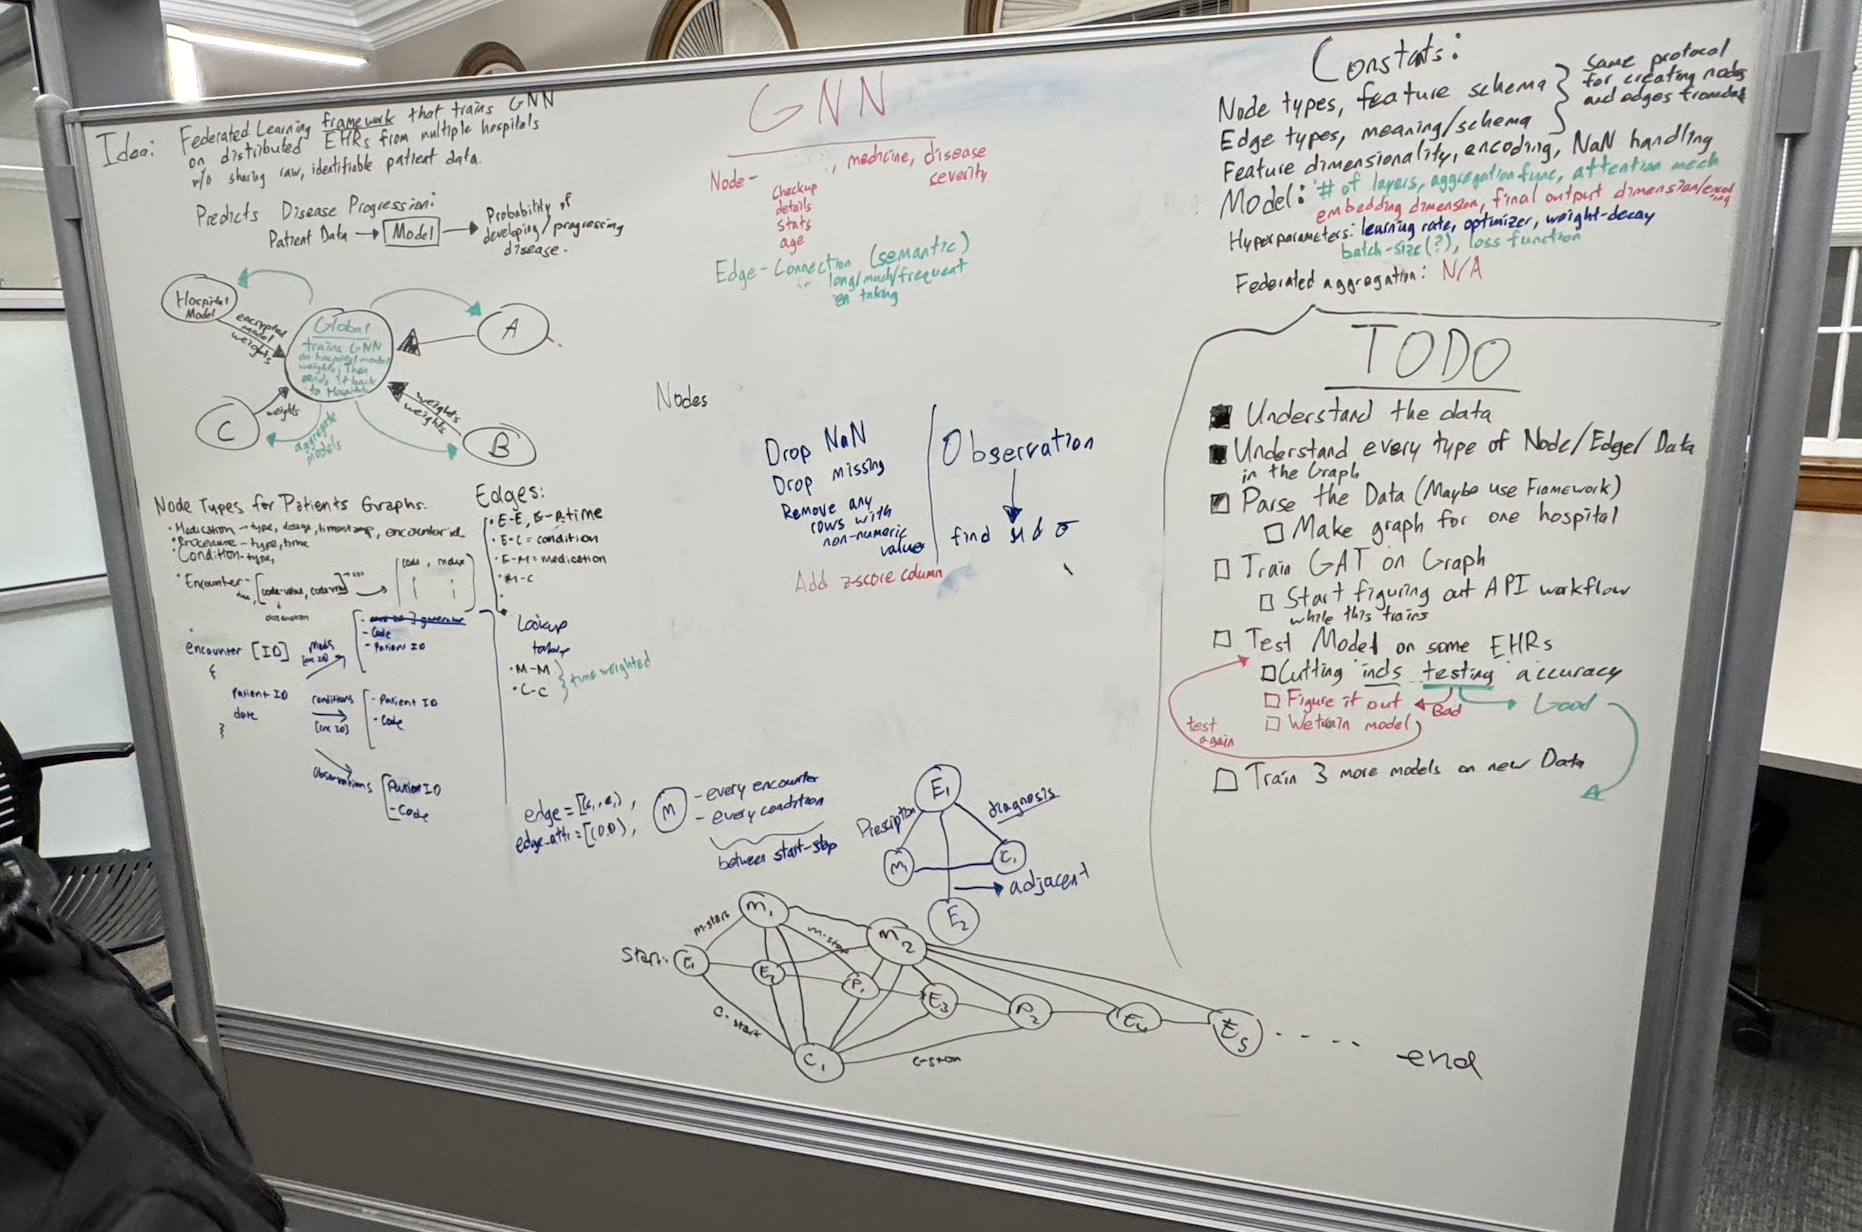 Idea: Federated Learning framework that trains GNN
on distributed EHRs from multiple hospitals
w/o sharing raw, identifiable patient data.
Predicts Disease Progression:
Patient Data → Model → Probability of
developing/progressing
disease.
Hospital
Model
encrypted
model
weights
Global
trains GNN
on hospital model
weights; Then
sends it back
to Hospitals
A
B
C
weights
weights
weights
aggregate
models
Node Types for Patients Graphs.
• Medication - type, dosage, timestamp, encounter id
• Procedure - type, time
• Condition - type,
• Encounter -
code, index
encounter [ID]
{
Patient ID
date
}
meds
- Code
- Patient ID
conditions
- Patient ID
- Code
Observations
Patient ID
- Code
Edges:
• E-E, time
• E-C = condition
• E-M = medication
• M-C
Lookup
• M-M
• C-C
} time weighted
GNN
Node - , medicine, disease
severity
Checkup
details
stats
age
Edge - Connection (semantic)
long/much/frequent
on taking
Nodes
Drop NaN
Drop missing
Remove any
rows with
non-numeric
values
Add z-score column
Observation
find μ & σ
edge =
edge_attr =
M - every encounter
- every condition
between start-stop
E1
Presciption
diagnosis
M
C1
adjacent
E2
Start:
E1
m-start
M1
m-stop
M2
E2
P1
E3
P2
E4
E5
.... end
C-start
C1
Constats:
Node types, feature schema
Edge types, meaning/schema
} Same protocal
for creating nodes
and edges from
Feature dimensionality, encoding, NaN handling
Model: # of layers, aggregation func, attention mech
embedding dimension, final output dimension/
Hyperparameters: learning rate, optimizer, weight-decay
batch-size(?), loss function
Federated aggregation: N/A
TODO
Understand the data
Understand every type of Node/Edge/Data
in the Graph
Parse the Data (Maybe use Framework)
Make graph for one hospital
Train GAT on Graph
Start figuring out API workflow
while this trains
Test Model on some EHRs
Cutting inds testing accuracy
Figure it out ← Bad → Good
model
test
again
Train 3 more models on new Data